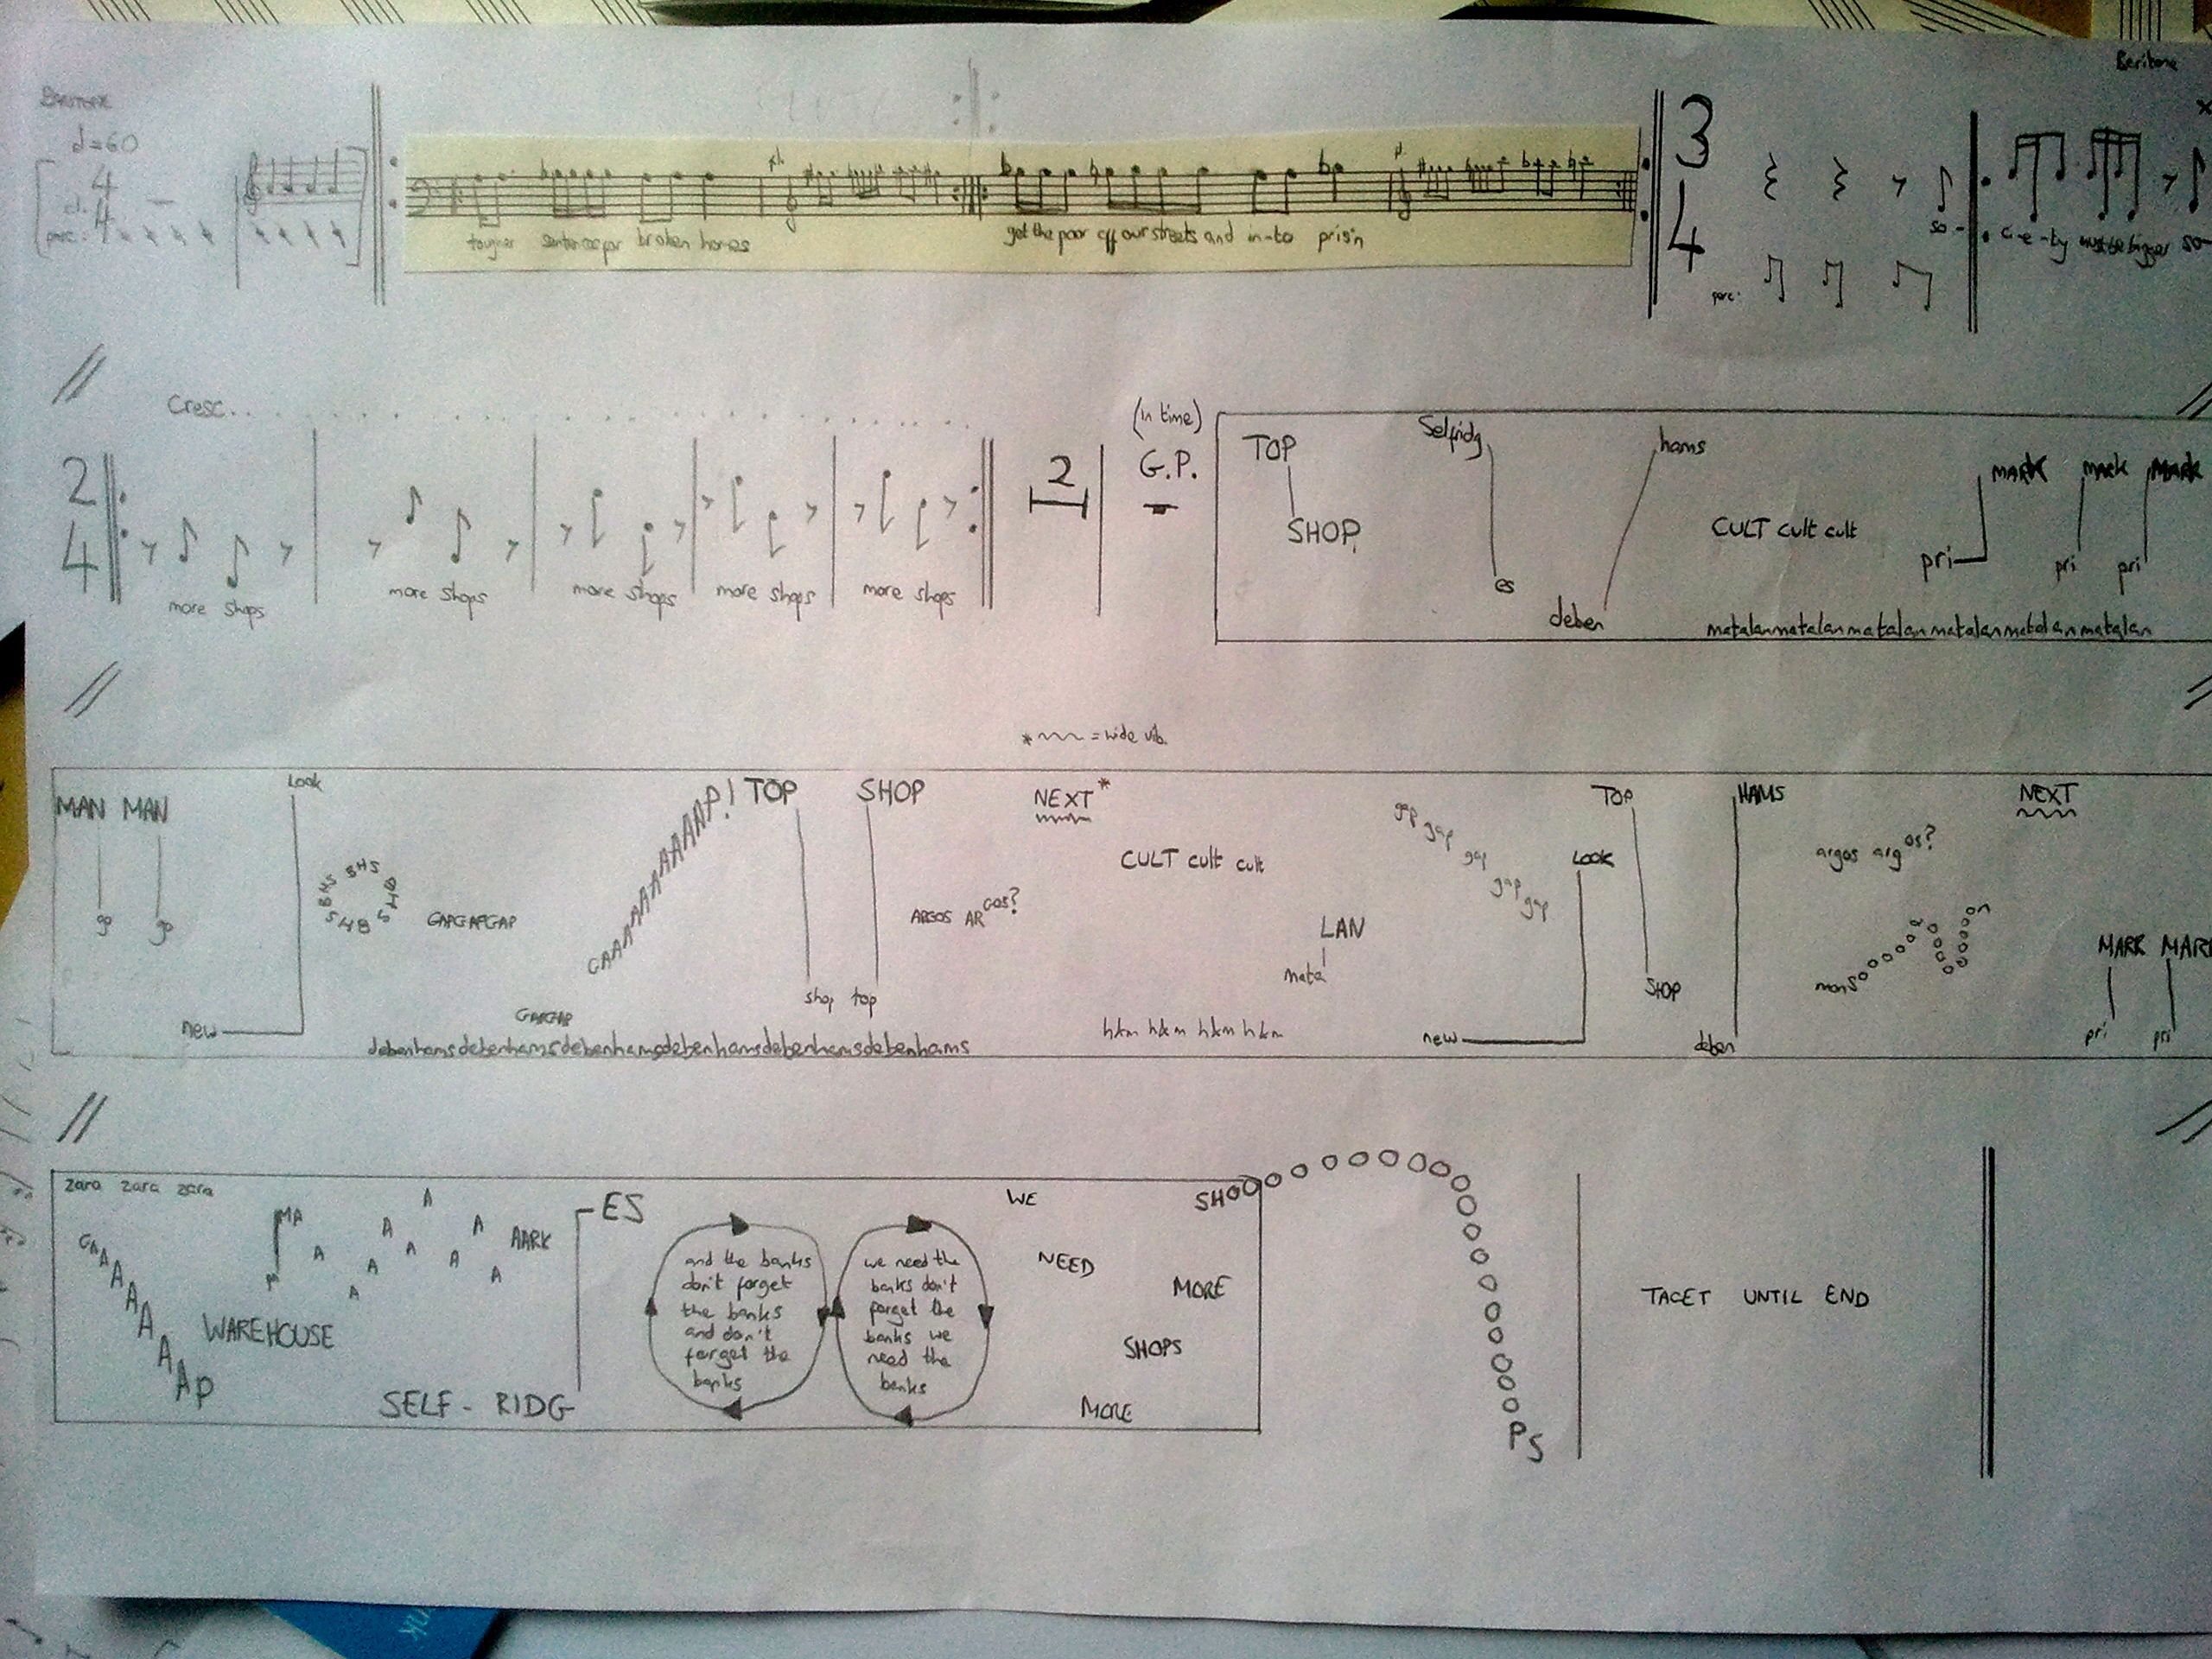 Baritone
Baritone
♩=60
4
4
cl.
perc.
tougher sentences for broken homes
cl.
get the poor off our streets and in-to pris'n
3
4
so-
perc.
ci-e-ty must be bigger so-
Cresc. . .
2
4
more shops more shops more shops more shops more shops
2
(in time)
G.P.
TOP
SHOP
Selfridg
es
hams
deben
CULT cult cult
MARK mark MARK
pri pri pri
matalanmatalanmatalanmatalanmatalanmatalan
* = wide vib.
MAN MAN
go go
Look
new
BHS BHS BHS BHS
GAPGAPGAP
GAPGAP
GAAAAAAAAAAAAP!
debenhamsdebenhamsdebenhamsdebenhamsdebenhamsdebenhams
TOP SHOP
shop top
ARGOS ARGOS?
NEXT*
CULT cult cult
LAN
mata
h&m h&m h&m h&m
gap gap gap gap gap
Look
new
TOP
SHOP
HAMS
deben
argos argos?
NEXT
MARK MARK
pri pri
zara zara zara
GAAAAAAAP
WAREHOUSE
MA
A A A A A A A A A A AARK
SELF-RIDG
ES
and the banks
don't forget
the banks
and don't
forget the
banks
we need the
banks don't
forget the
banks we
need the
banks
WE
NEED
MORE
SHOPS
MORE
SHOOOOOOOOOOOOOOOOOOOOOOPS
TACET UNTIL END